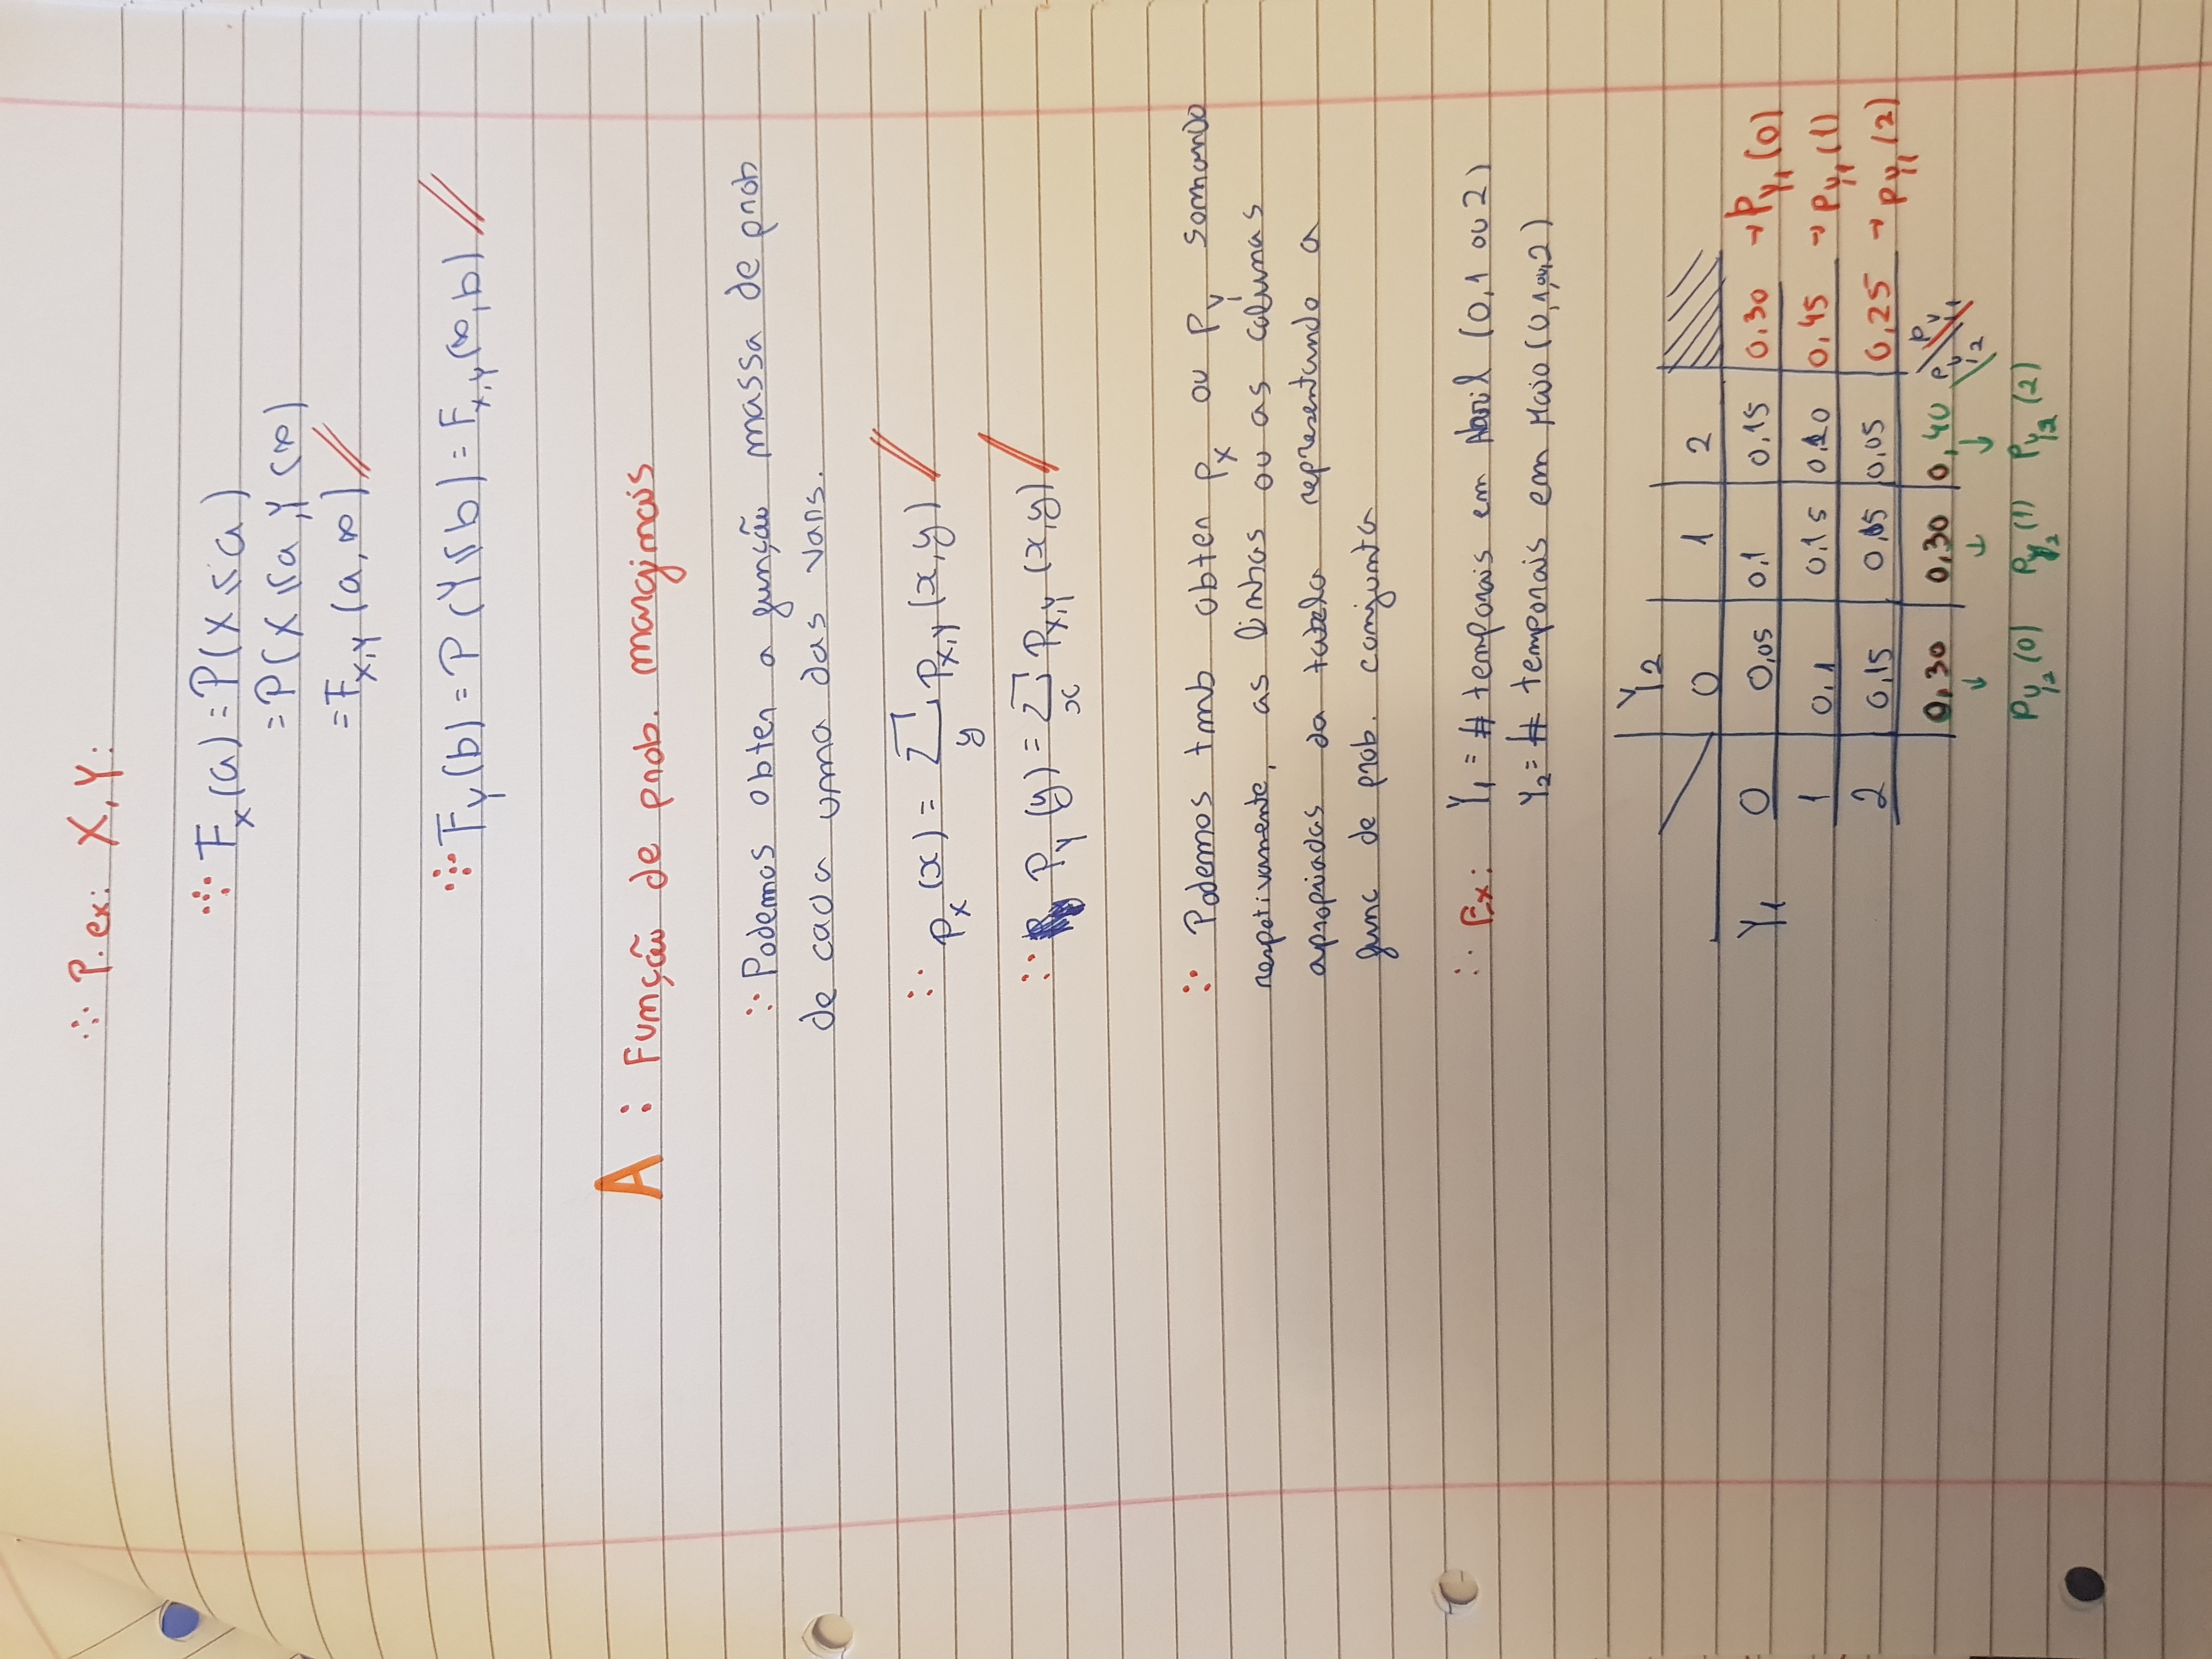 ∴ P. ex: X, Y:
F_X(a) = P(X ≤ a)
= P(X ≤ a, Y < ∞)
= F_X,Y (a, ∞) //
F_Y(b) = P(Y ≤ b) = F_X,Y(∞, b) //
A : Função de prob. marginais
Podemos obter a função massa de prob
de cada uma das vars.
p_X(x) = Σ_y p_X,Y (x,y) //
p_Y(y) = Σ_x p_X,Y (x,y) //
Podemos tmb obter p_X ou p_Y somando
respetivamente, as linhas ou as colunas
apropriadas da tabela representando a
func de prob. conjunta
Ex: Y₁ = # temporais em Abril (0,1 ou 2)
Y₂ = # temporais em Maio (0,1,ou,2)
Y₂
0 1 2
Y₁ 0 0,05 0,1 0,15 0,30 → P_Y₁(0)
1 0,1 0,15 0,20 0,45 → P_Y₁(1)
2 0,15 0,05 0,05 0,25 → P_Y₁(2)
0,30 0,30 0,40 P_Y₂ \\ P_Y₁
↓ ↓ ↓
P_Y₂(0) P_Y₂(1) P_Y₂(2)